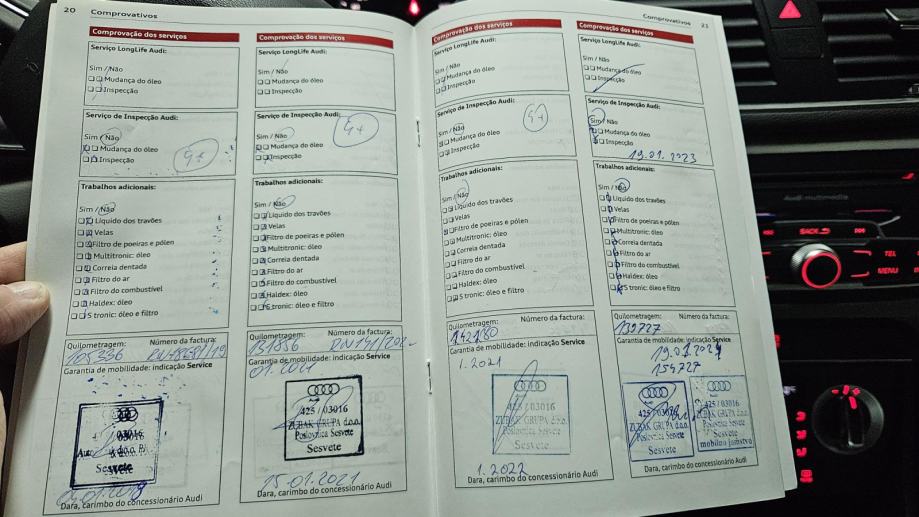 20 Comprovativos
Comprovação dos serviços
Serviço LongLife Audi:
Sim / Não
Mudança do óleo
Inspecção
Serviço de Inspecção Audi:
Sim / Não
Mudança do óleo
Inspecção
G+
Trabalhos adicionais:
Sim / Não
Líquido dos travões
Velas
Filtro de poeiras e pólen
Multitronic: óleo
Correia dentada
Filtro do ar
Filtro do combustível
Haldex: óleo
S tronic: óleo e filtro
Quilometragem: Número da factura:
105336
Garantia de mobilidade: indicação Service
03016
Sesvete
Dara, carimbo do concessionário Audi
Comprovação dos serviços
Serviço LongLife Audi:
Sim / Não
Mudança do óleo
Inspecção
Serviço de Inspecção Audi:
Sim / Não
Mudança do óleo
Inspecção
G+
Trabalhos adicionais:
Sim / Não
Líquido dos travões
Velas
Filtro de poeiras e pólen
Multitronic: óleo
Correia dentada
Filtro do ar
Filtro do combustível
Haldex: óleo
S tronic: óleo e filtro
Quilometragem: Número da factura:
131856
Garantia de mobilidade: indicação Service
01.2021
425 / 03016
ZUBAK GRUPA d.o.o.
Poslovnica Sesvete
Sesvete
15-01.2021
Dara, carimbo do concessionário Audi
Comprovativos 21
Comprovação dos serviços
Serviço LongLife Audi:
Sim / Não
Mudança do óleo
Inspecção
Serviço de Inspecção Audi:
Sim / Não
Mudança do óleo
Inspecção
G+
Trabalhos adicionais:
Sim / Não
Líquido dos travões
Velas
Filtro de poeiras e pólen
Multitronic: óleo
Correia dentada
Filtro do ar
Filtro do combustível
Haldex: óleo
S tronic: óleo e filtro
Quilometragem: Número da factura:
142180
Garantia de mobilidade: indicação Service
1.2021
425 / 03016
ZUBAK GRUPA d.o.o.
Poslovnica Sesvete
Sesvete
1.2022
Dara, carimbo do concessionário Audi
Comprovação dos serviços
Serviço LongLife Audi:
Sim / Não
Mudança do óleo
Inspecção
Serviço de Inspecção Audi:
Sim / Não
Mudança do óleo
Inspecção
19.01.2023
Trabalhos adicionais:
Sim / Não
Líquido dos travões
Velas
Filtro de poeiras e pólen
Multitronic: óleo
Correia dentada
Filtro do ar
Filtro do combustível
Haldex: óleo
S tronic: óleo e filtro
Quilometragem: Número da factura:
Garantia de mobilidade: indicação Service
154727
425 / 03016
ZUBAK GRUPA d.o.o.
Poslovnica Sesvete
Sesvete
425 / 03016
ZUBAK GRUPA d.o.o.
Poslovnica Sesvete
Sesvete
mobilna jamstva
Dara, carimbo do concessionário Audi
Audi multimedia
BACK
TEL
MENU